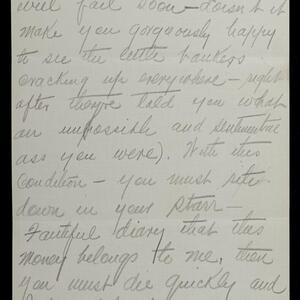 will fail soon – doesn't it
make you gorgeously happy
to see the little bankers
cracking up everywhere – right
after they've told you what
an impossible and sentimental
ass you were). With this
Condition – you must
down in your
Faithful diary that this
money belongs to me, then
you must die quickly and